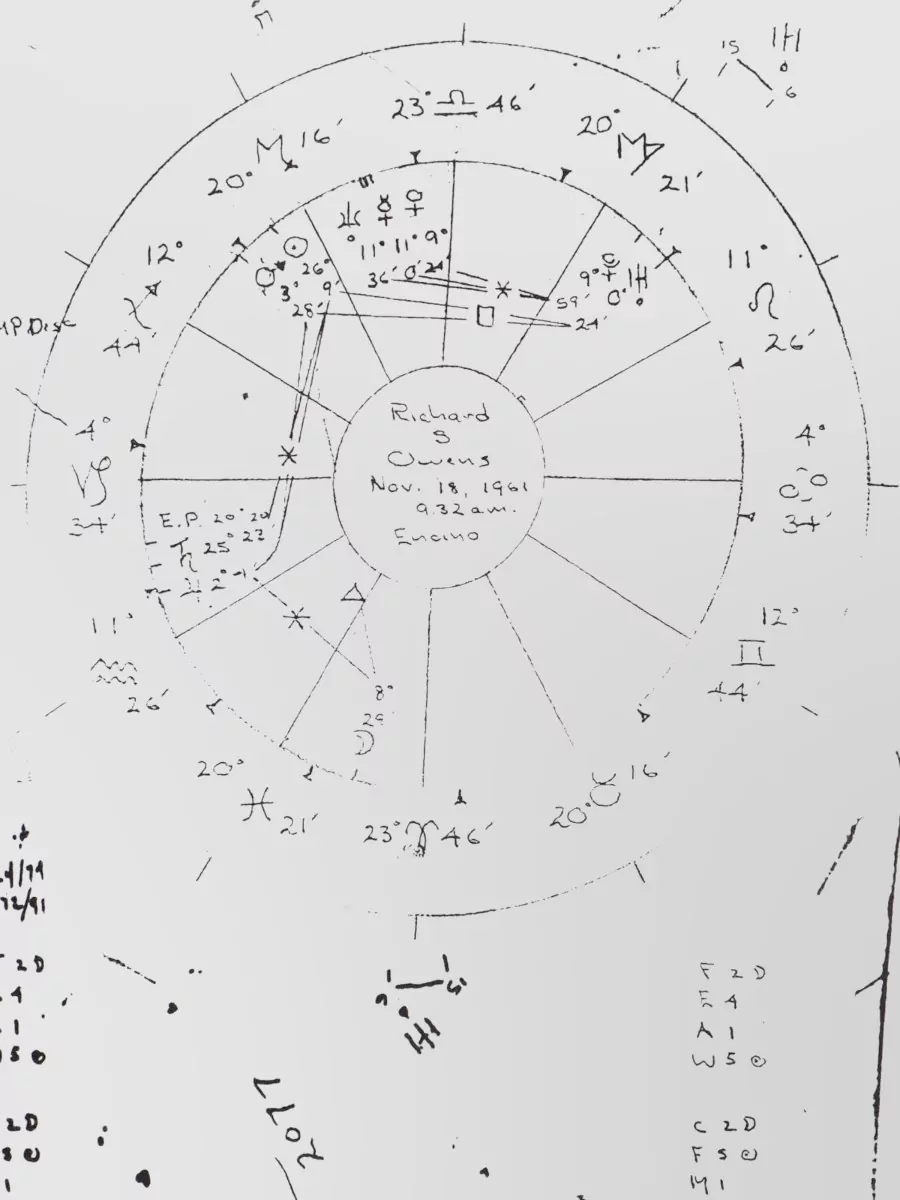 15 ♅
6
23° ♎ 46′
20° ♏ 16′
20° ♍ 21′
12° ♐ 44′
11° ♌ 26′
♆ ☿ ♀
11° 11° 9°
36′ 0′ 24′
☉
26°
3° 9′
28′
9° 0° ♅
59′
24′
4° ♑ 34′
4° ♋ 34′
Richard
S
Owens
Nov. 18, 1961
9.32 a.m.
Encino
E.P. 20° 20′
25° 23′
♃ 2°
11° ♒ 26′
12° ♊ 44′
8°
29
☽
20° ♓ 21′
20° ♉ 16′
23° ♈ 46′
72/91
2 D
4
1
5 ☉
F 2 D
E 4
A 1
W 5 ☉
2 D
C 2 D
F 5 ☉
M 1